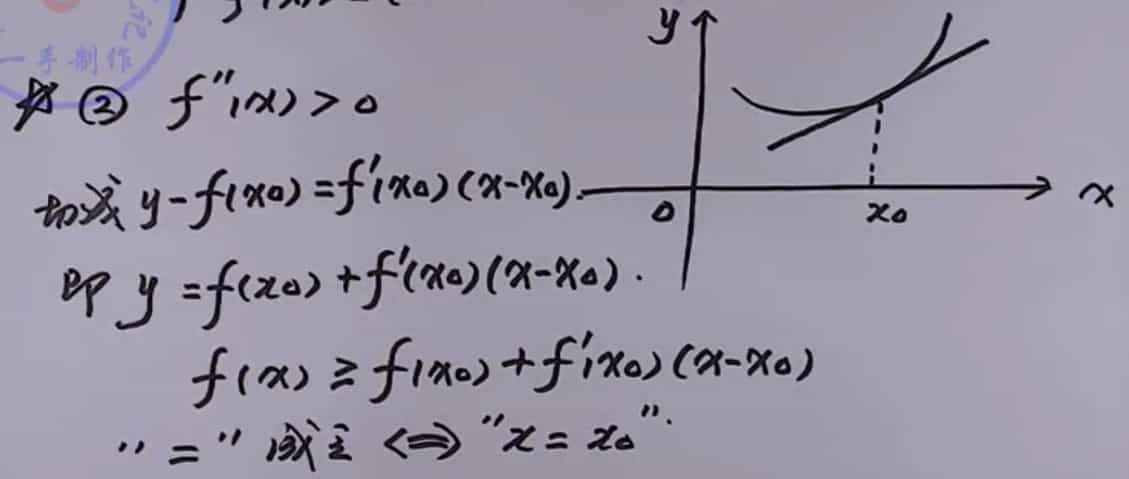 一手制作
② f''(x) > 0
切线 y-f(x0) = f'(x0)(x-x0).
即 y = f(x0) + f'(x0)(x-x0).
f(x) ≥ f(x0) + f'(x0)(x-x0)
"=" 成立 ⇔ "x = x0".
y
0
x0
x